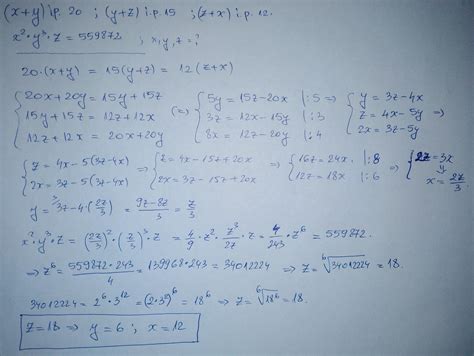 (x+y) i.p. 20 ; (y+z) i.p. 15 ; (z+x) i.p. 12.
x² · y³ · z = 559872 ; x, y, z = ?
20·(x+y) = 15(y+z) = 12(z+x)
{ 20x+20y = 15y+15z
15y+15z = 12z+12x
12z+12x = 20x+20y (=> { 5y = 15z-20x |:5
3z = 12x-15y |:3
8x = 12z-20y |:4 => { y = 3z-4x
z = 4x-5y =>
2x = 3z-5y
{ z = 4x-5(3z-4x)
2x = 3z-5(3z-4x) => { z = 4x-15z+20x
2x = 3z-15z+20x => { 16z = 24x |:8
12z = 18x |:6 => { 2z = 3x
x = 2z/3
y = 3z-4·(2z/3) = (9z-8z)/3 = z/3
x²·y³·z = (2z/3)²·(z/3)³·z = 4/9·z²·z³/27·z = 4/243·z⁶ = 559872.
=> z⁶ = 559872·243/4 = 139968·243 = 34012224 => z = ⁶√34012224 = 18.
34012224 = 2⁶·3¹² = (2·3²)⁶ = 18⁶ => z = ⁶√18⁶ = 18.
z = 18 => y = 6 ; x = 12